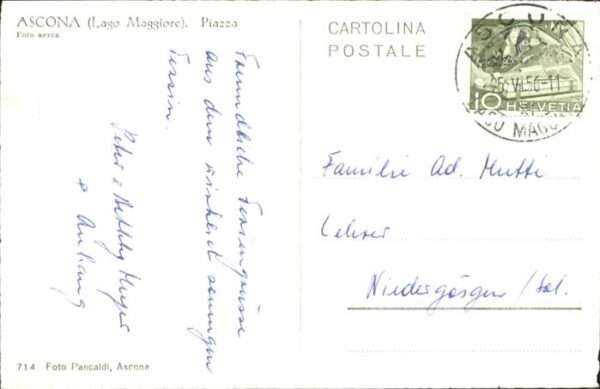 ASCONA (Lago Maggiore). Piazza
Foto aerea
CARTOLINA
POSTALE
ASCONA
25.VI.56-11
LAGO MAGGIORE
10 HELVETIA
Freundliche Feriengrüsse
aus dem sonnigen
Tessin.
Peter &
& Anhang
Familie Ad. Mutti
Lehrer
Niedergösgen /Sol.
714 Foto Pancaldi, Ascona